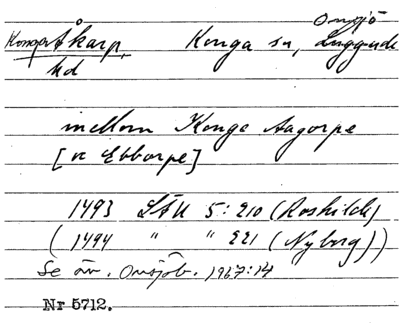 Onsjö
Konga Åkarp, Konga sn, Luggude
hd
mellom Konge Aagorpe
[oc Ebborpe]
1493 SÄU 5: 210 (Roskilde)
(1494 " " 221 (Nyborg))
Se äv. Onsjöb. 1967:14
Nr 5712.